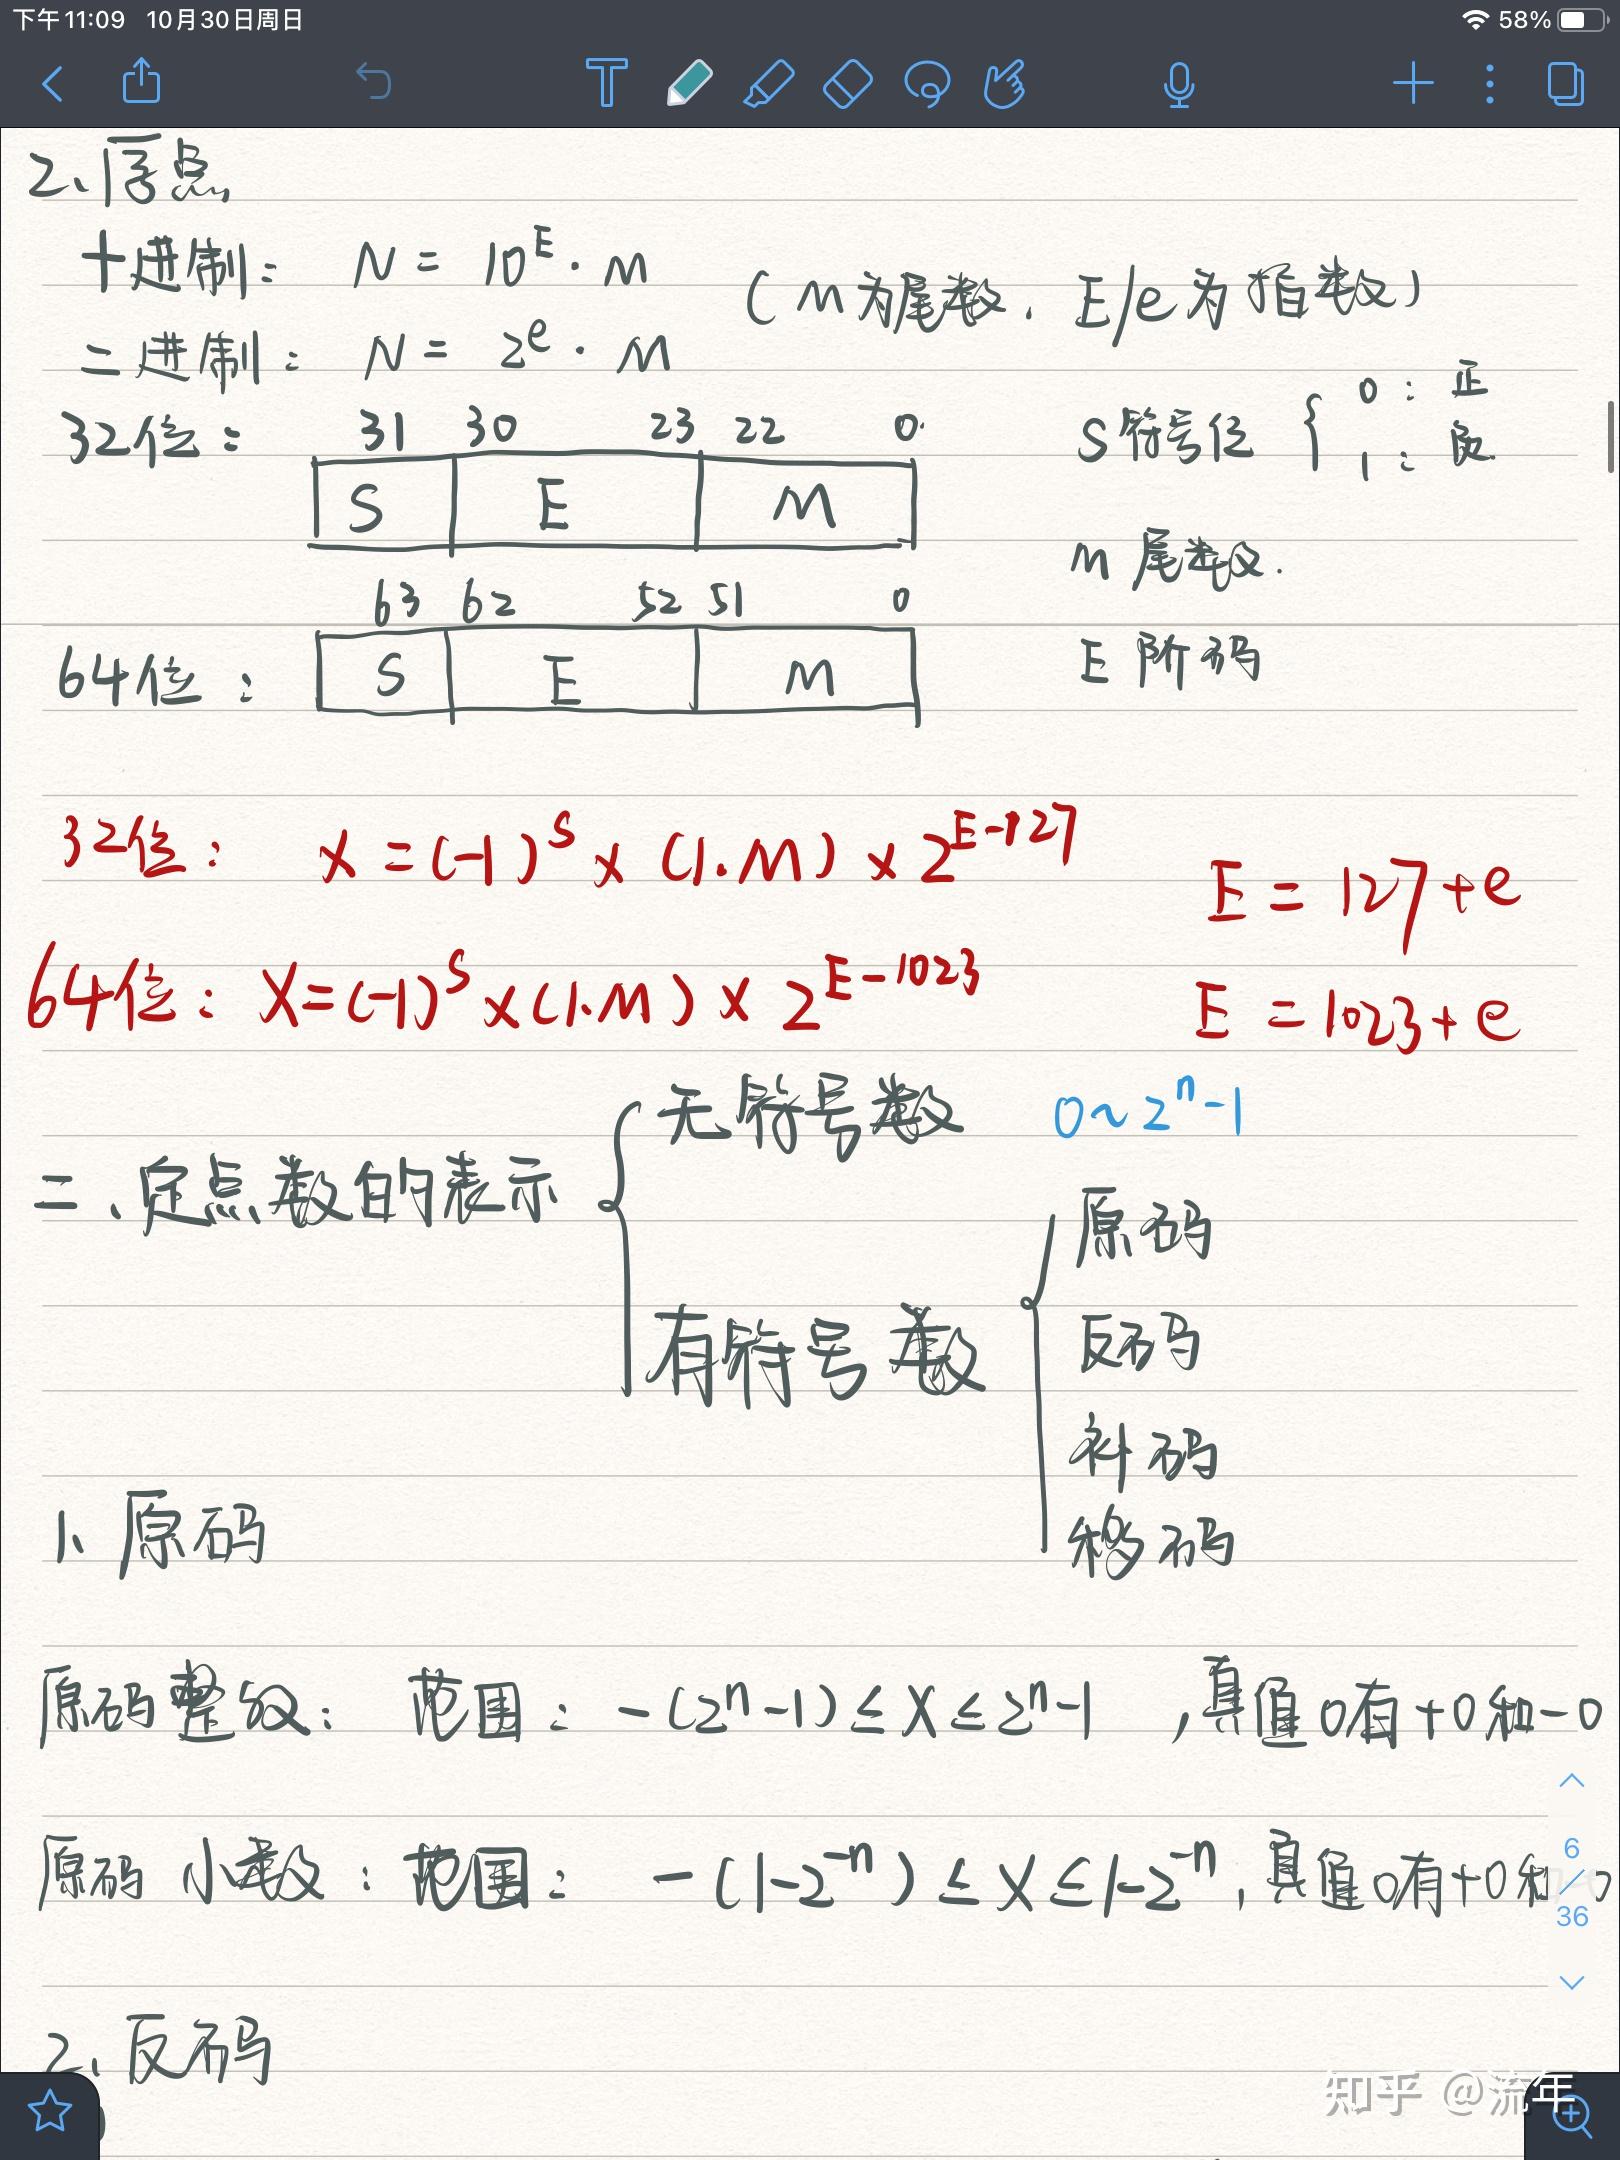 下午11:09 10月30日周日
58%
2、浮点
十进制: N = 10^E · M
(M为尾数, E/e为指数)
二进制: N = 2^e · M
32位: 31 30 23 22 0
S E M
S符号位 { 0: 正
1: 负
M 尾数.
63 62 52 51 0
64位: S E M
E 阶码
32位: x = (-1)^S × (1.M) × 2^{E-127}
E = 127 + e
64位: X = (-1)^S × (1.M) × 2^{E-1023}
E = 1023 + e
二、定点数的表示
无符号数 0~2^n-1
有符号数
原码
反码
补码
移码
1、原码
原码整数: 范围: -(2^n-1) ≤ X ≤ 2^n-1 , 真值0有+0和-0
原码小数: 范围: -(1-2^{-n}) ≤ X ≤ 1-2^{-n}, 真值0有+0和-0
6/36
2、反码
知乎 @流年